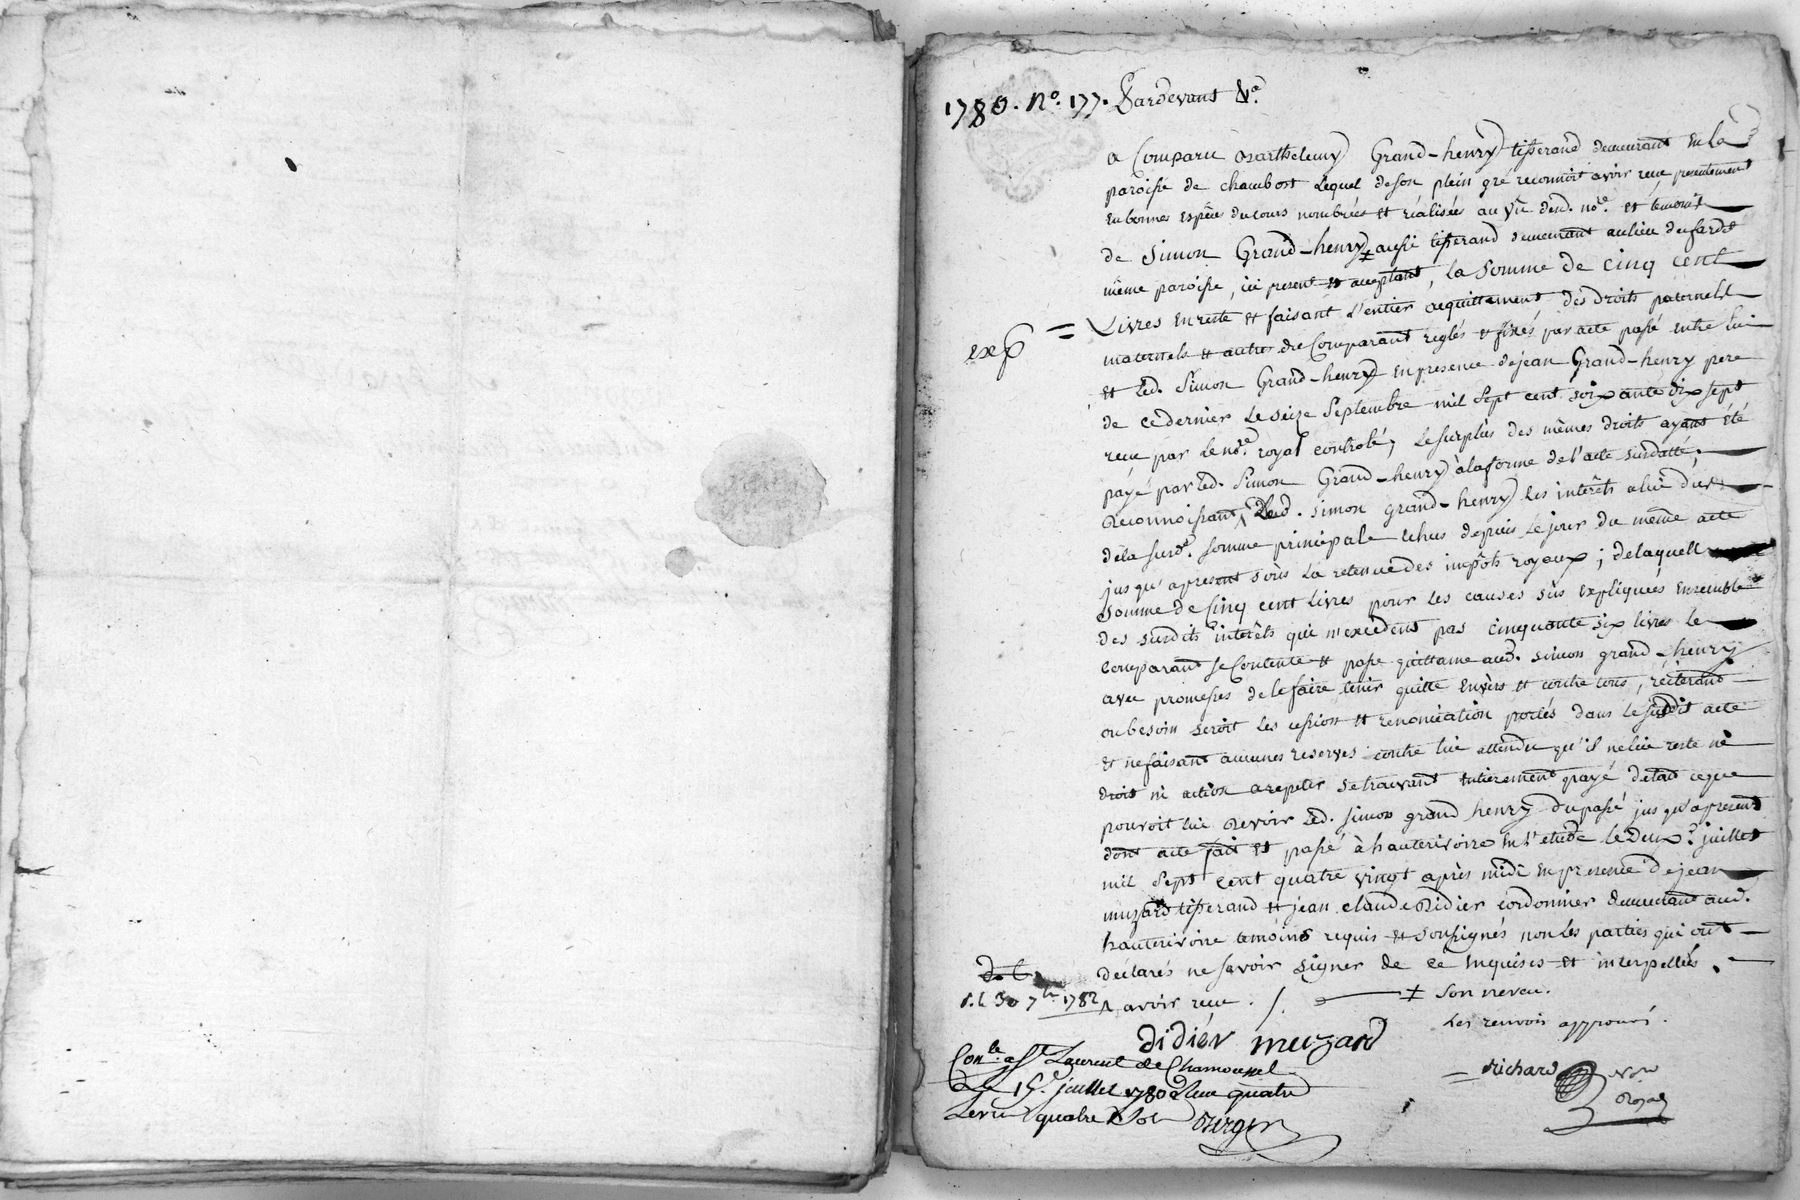 1780. No. 177. Pardevant &c.
a Comparu Barthelemy Grand-henry tisserand demeurant en la
paroisse de chambost lequel de son plein gré reconnoit avoir reçu presentement
en bonnes espêces du cours nombrées et réalisées au vû dud. nore. et temoins
de Simon Grand-henry ‡ aussi tisserand demeurant au lieu du fardit
même paroisse, ici present et acceptant, la Somme de cinq cent
exp = Livres en reste et faisant l'entier acquittement des droits paternels
maternels et autres du Comparant reglés et fixés par acte passé entre lui
et led. Simon Grand-henry en presence de jean Grand-henry pere
de ce dernier le seize Septembre mil sept cent soixante dix sept
reçu par le nore. royal controlé, le surplus des mêmes droits ayant été
payé par led. Simon Grand-henry à la forme de l'acte susdatté,
Reconnoissant ^ dud. Simon grand-henry les intérêts a lui dus
de la susd. somme principale échus depuis le jour du même acte
jusqu'apresent sous la retenue des impôts royaux ; de laquelle
Somme de Cinq cent livres pour les causes sus expliquées ensemble
des susdits interêts qui n'excedent pas cinquante six livres le
comparant se Contente et passe quittance aud. Simon grand-henry
avec promesses de le faire tenir quitte envers et contre tous, réiterant
ou besoin seroit les cession et renonciation portés dans le susdit acte
et ne faisant aucunes reserves contre lui attendu qu'il ne lui reste ni
droit ni action a repeter se trouvant entierement payé de tout ce que
pouvoit lui devoir led. Simon grand henry du passé jusqu'apresent
dont acte fait et passé à hauterivoire en l'etude le deux juillet
mil sept cent quatre vingt après midi en presence de jean
muzard tisserand et jean claude Didier cordonnier demeurant aud.
hauterivoire temoins requis et soussignés non les parties qui ont
déclarés ne savoir signer de ce enquises et interpellées.
30 7bre 1782 ^ avoir reçu. ‡ son neveu.
Les renvois approuvés.
didier muzard
Conlé. a St. Laurent de Chamousset
Le 15 juillet 1780 Reçu quatre
Livres quatre Sols
Richard Nore Royal